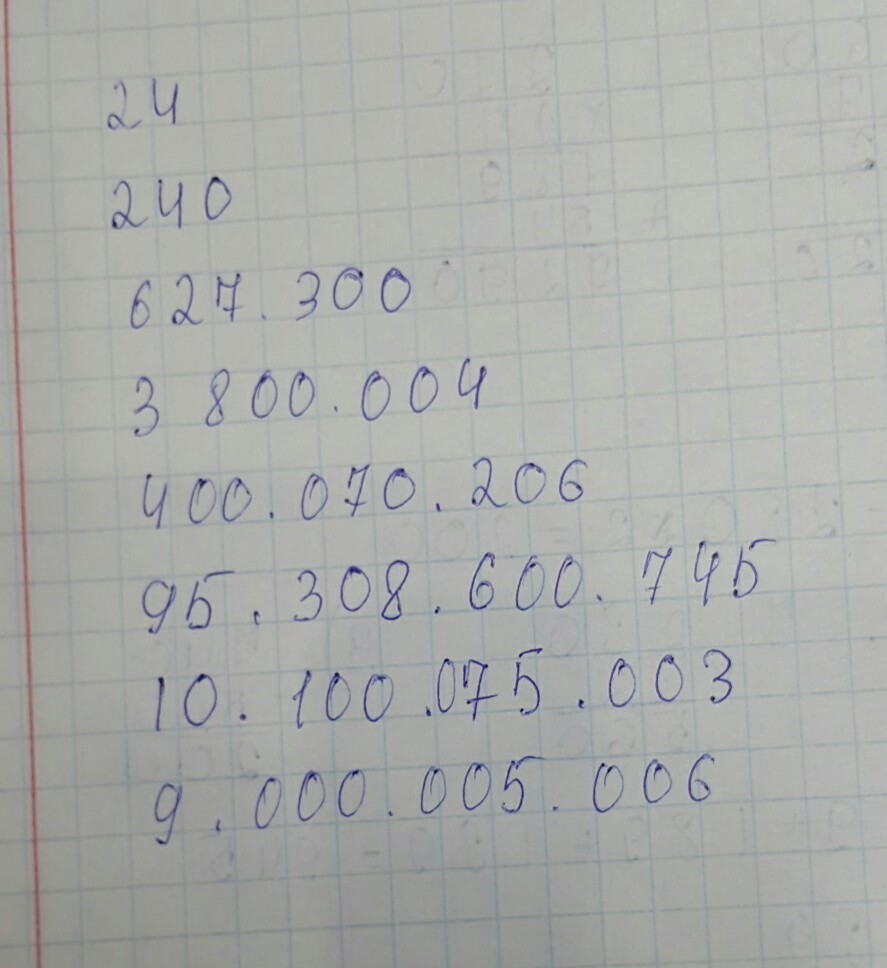 24
240
627.300
3 800.004
400.070.206
95.308.600.745
10.100.075.003
9.000.005.006